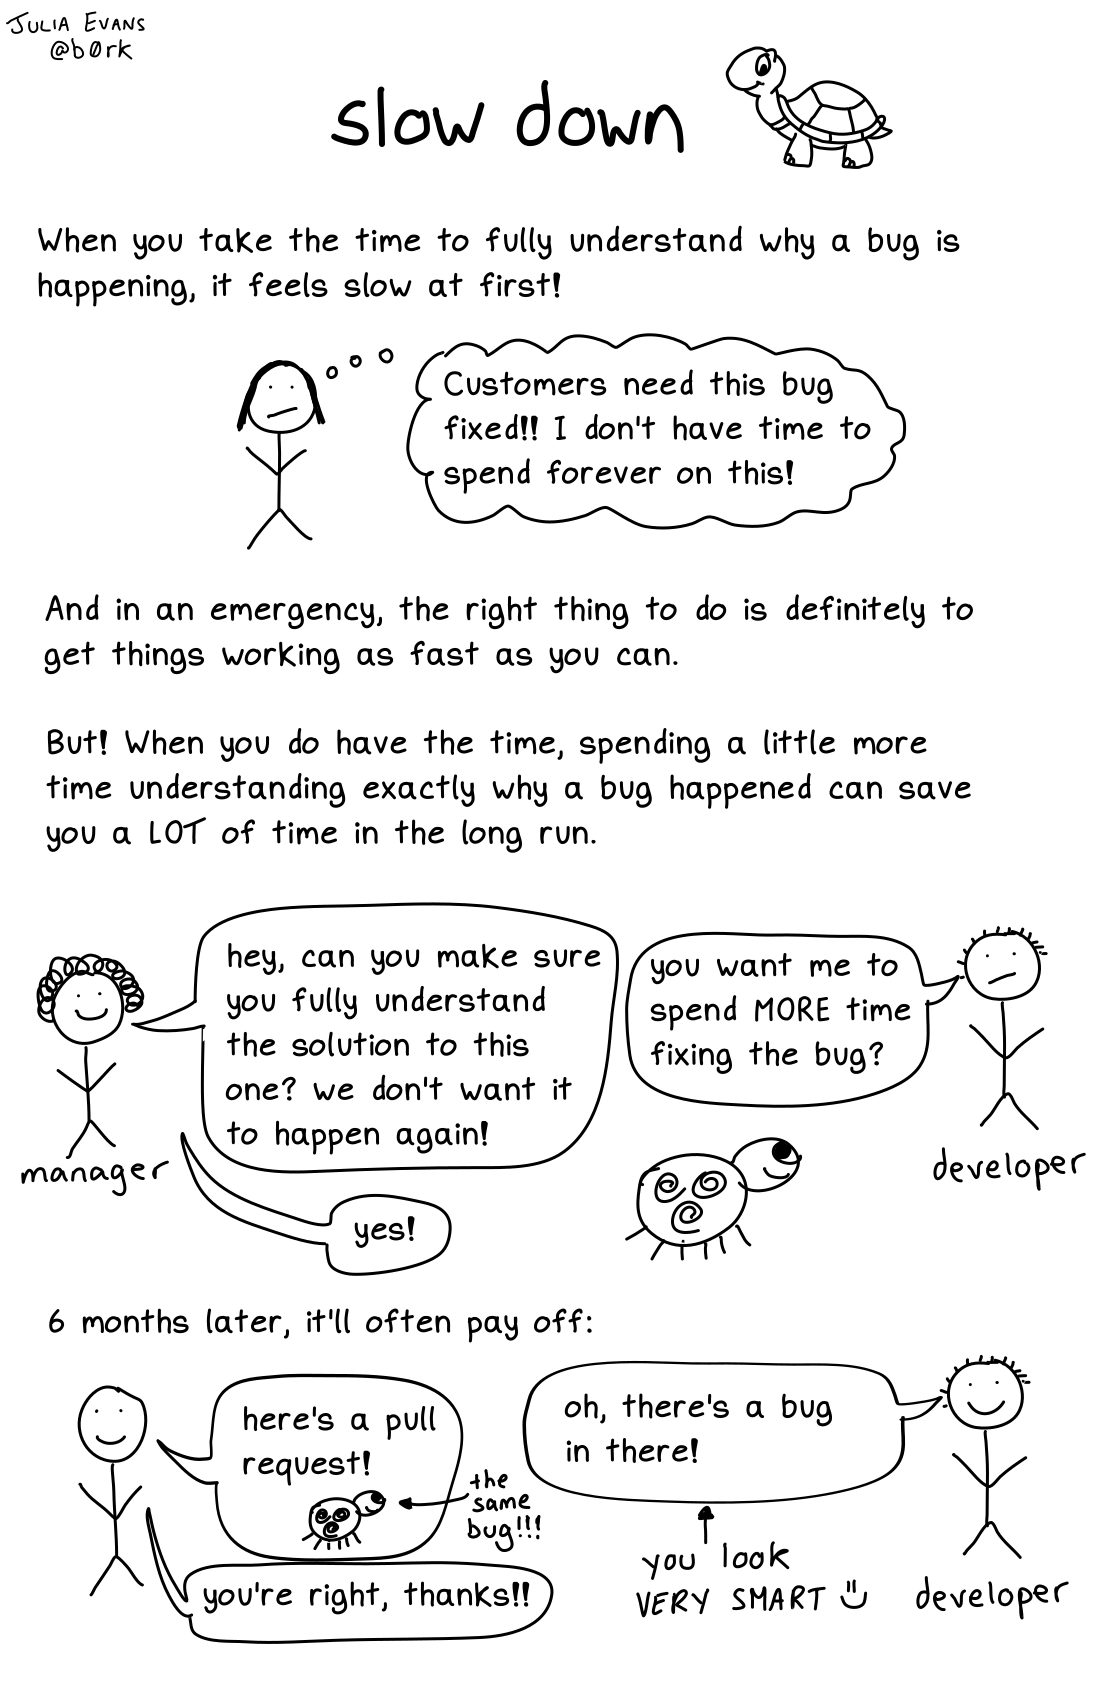 JULIA EVANS
@b0rk
slow down
When you take the time to fully understand why a bug is
happening, it feels slow at first!
Customers need this bug
fixed!! I don't have time to
spend forever on this!
And in an emergency, the right thing to do is definitely to
get things working as fast as you can.
But! When you do have the time, spending a little more
time understanding exactly why a bug happened can save
you a LOT of time in the long run.
hey, can you make sure
you fully understand
the solution to this
one? we don't want it
to happen again!
manager
you want me to
spend MORE time
fixing the bug?
developer
yes!
6 months later, it'll often pay off:
here's a pull
request!
the
same
bug!!!
oh, there's a bug
in there!
you look
VERY SMART
developer
you're right, thanks!!